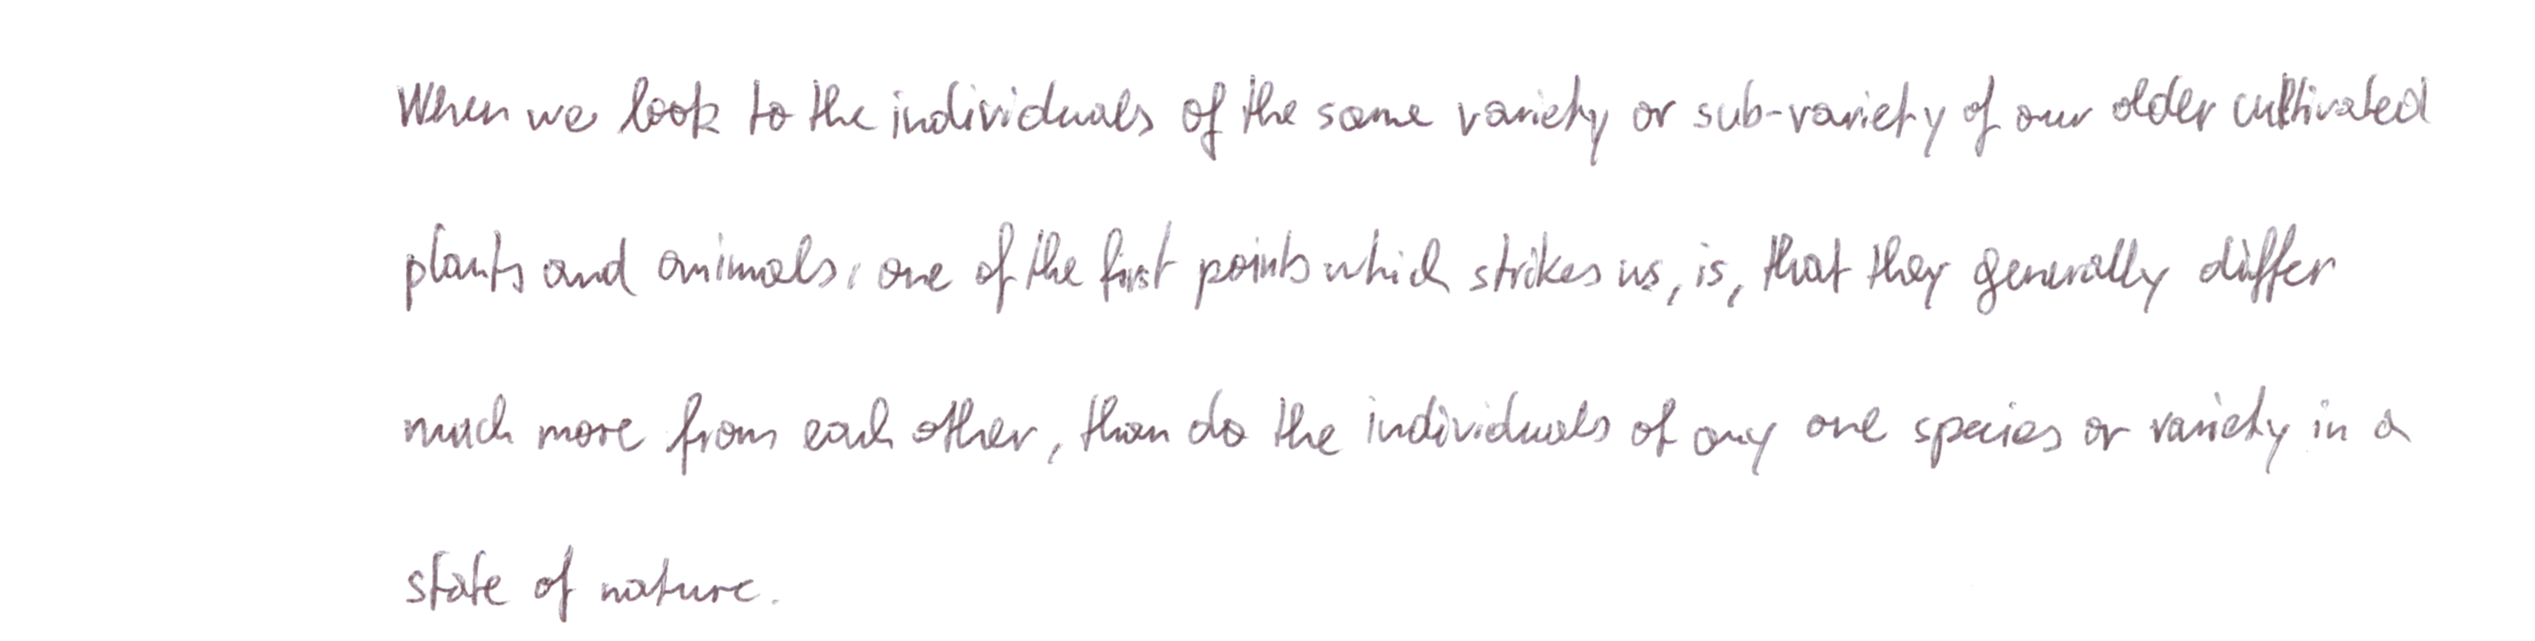 When we look to the individuals of the same variety or sub-variety of our older cultivated
plants and animals, one of the first points which strikes us, is, that they generally differ
much more from each other, than do the individuals of any one species or variety in a
state of nature.